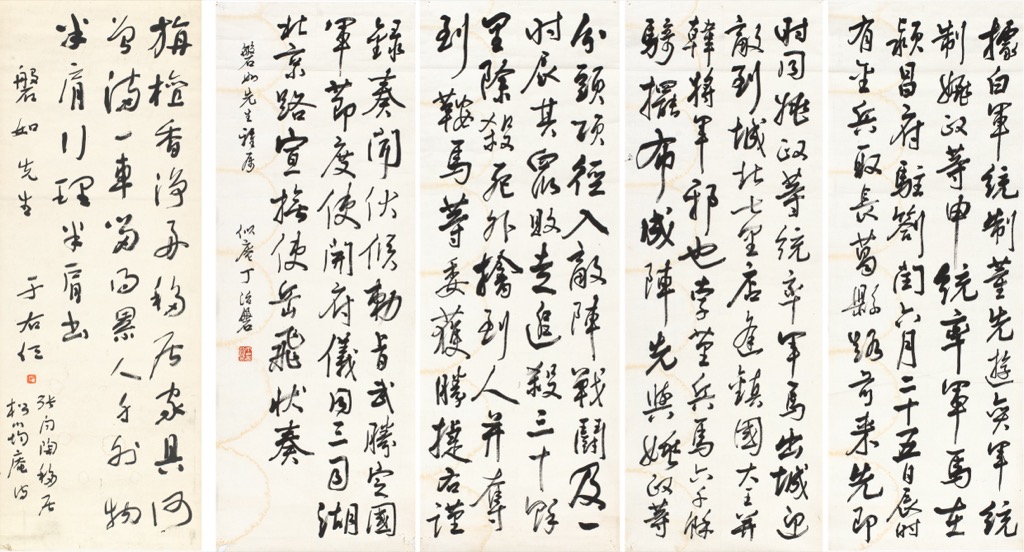 據白軍統制董先遊奕軍統
制姚政等申統率軍馬在
潁昌府駐劄閏六月二十五日辰時
有金兵取長葛縣路前來先即
時同姚政等統率軍馬出城迎
敵到城北七里店逢鎮國大王并
韓將軍邪也孛堇兵馬六千餘
騎擺布成陣先與姚政等
分頭項徑入敵陣戰鬬及一
時辰其眾敗走追殺三十餘
里除殺死外擒到人并奪
到鞍馬等委獲勝捷右謹
錄奏聞伏候勅旨武勝定國
軍節度使開府儀同三司湖
北京路宣撫使岳飛狀奏
磐如先生雅屬 似庵丁治磐
旃檀香淨每移居家具何
曾滿一車留得累人身外物
半肩行理半肩書
磐如先生 于右任
張問陶移居
松筠庵詩